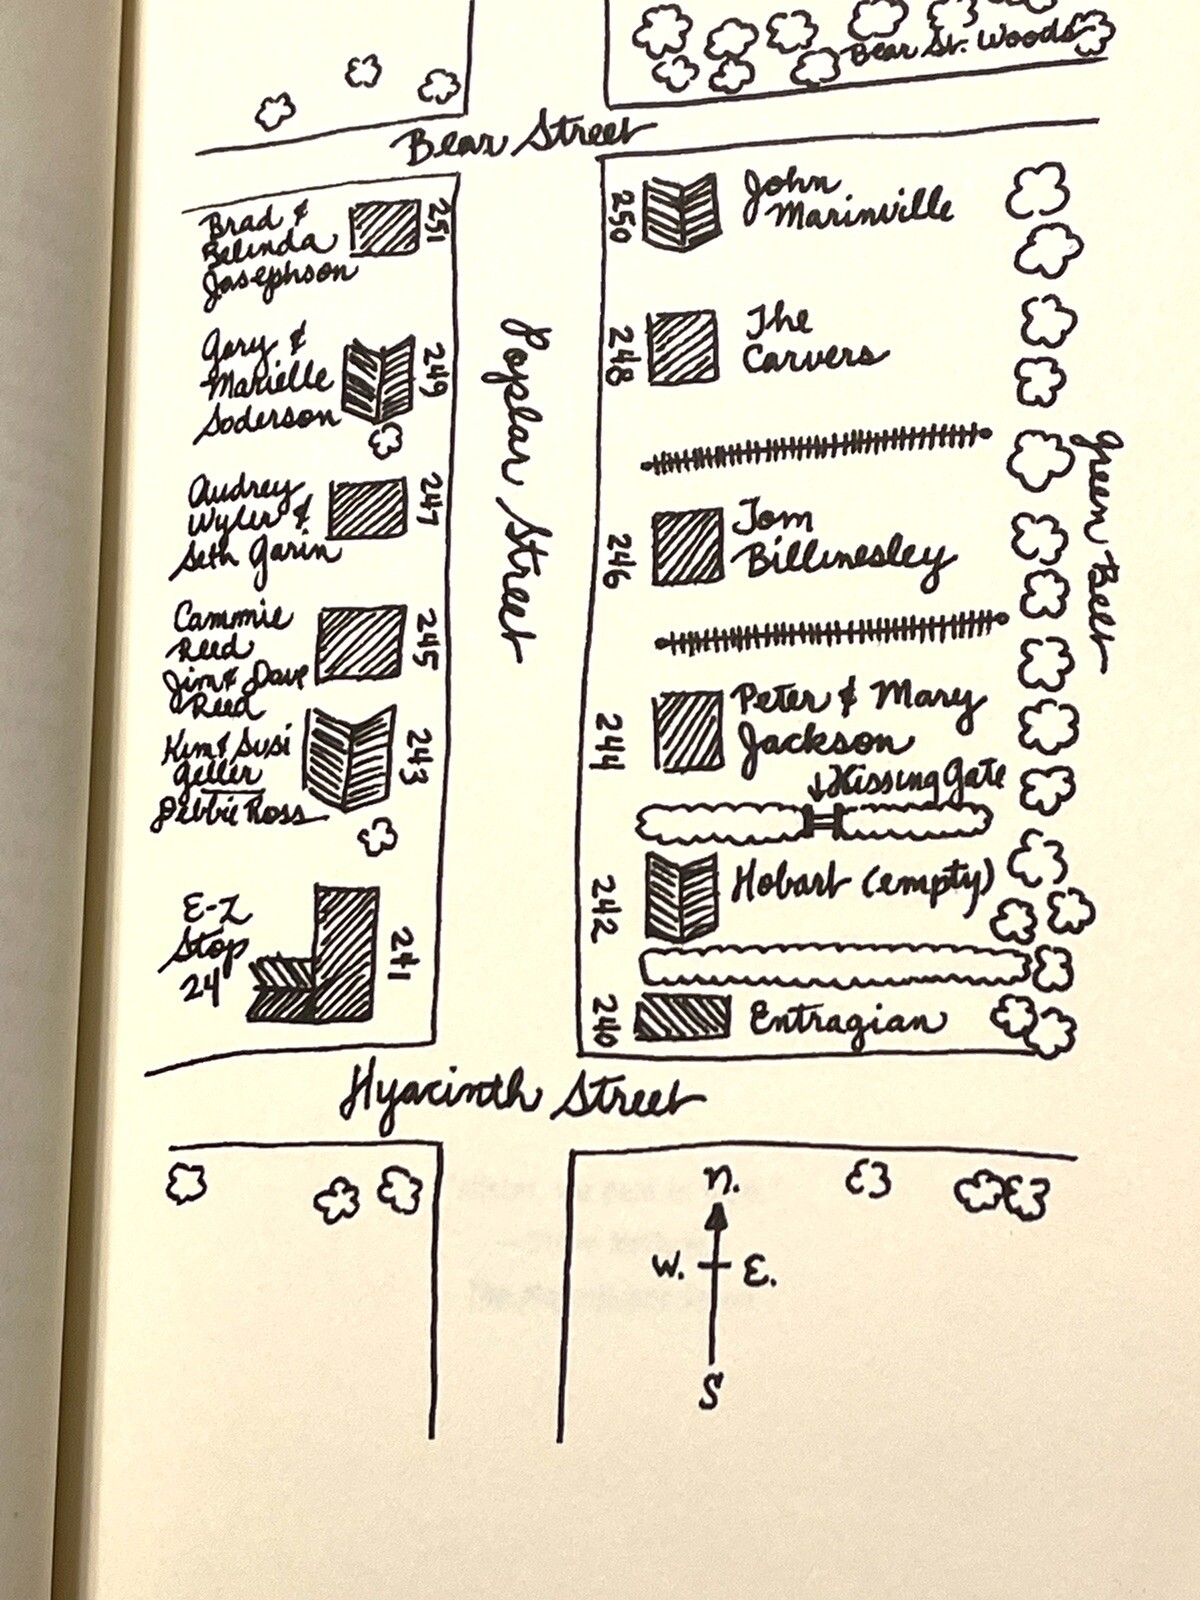 Bear St. Woods
Bear Street
Brad &
Belinda
Josephson
251
Gary &
Marielle
Soderson
249
Audrey
Wyler &
Seth Garin
247
Cammie
Reed
Jim & Dave
Reed
245
Kim & Susi
Geller
Debbie Ross
243
E-Z
Stop
24
241
Poplar Street
250
John
Marinville
248
The
Carvers
246
Tom
Billinesley
244
Peter & Mary
Jackson
↓Kissing Gate
242
Hobart (empty)
240
Entragian
Green Belt
Hyacinth Street
N.
W. E.
S